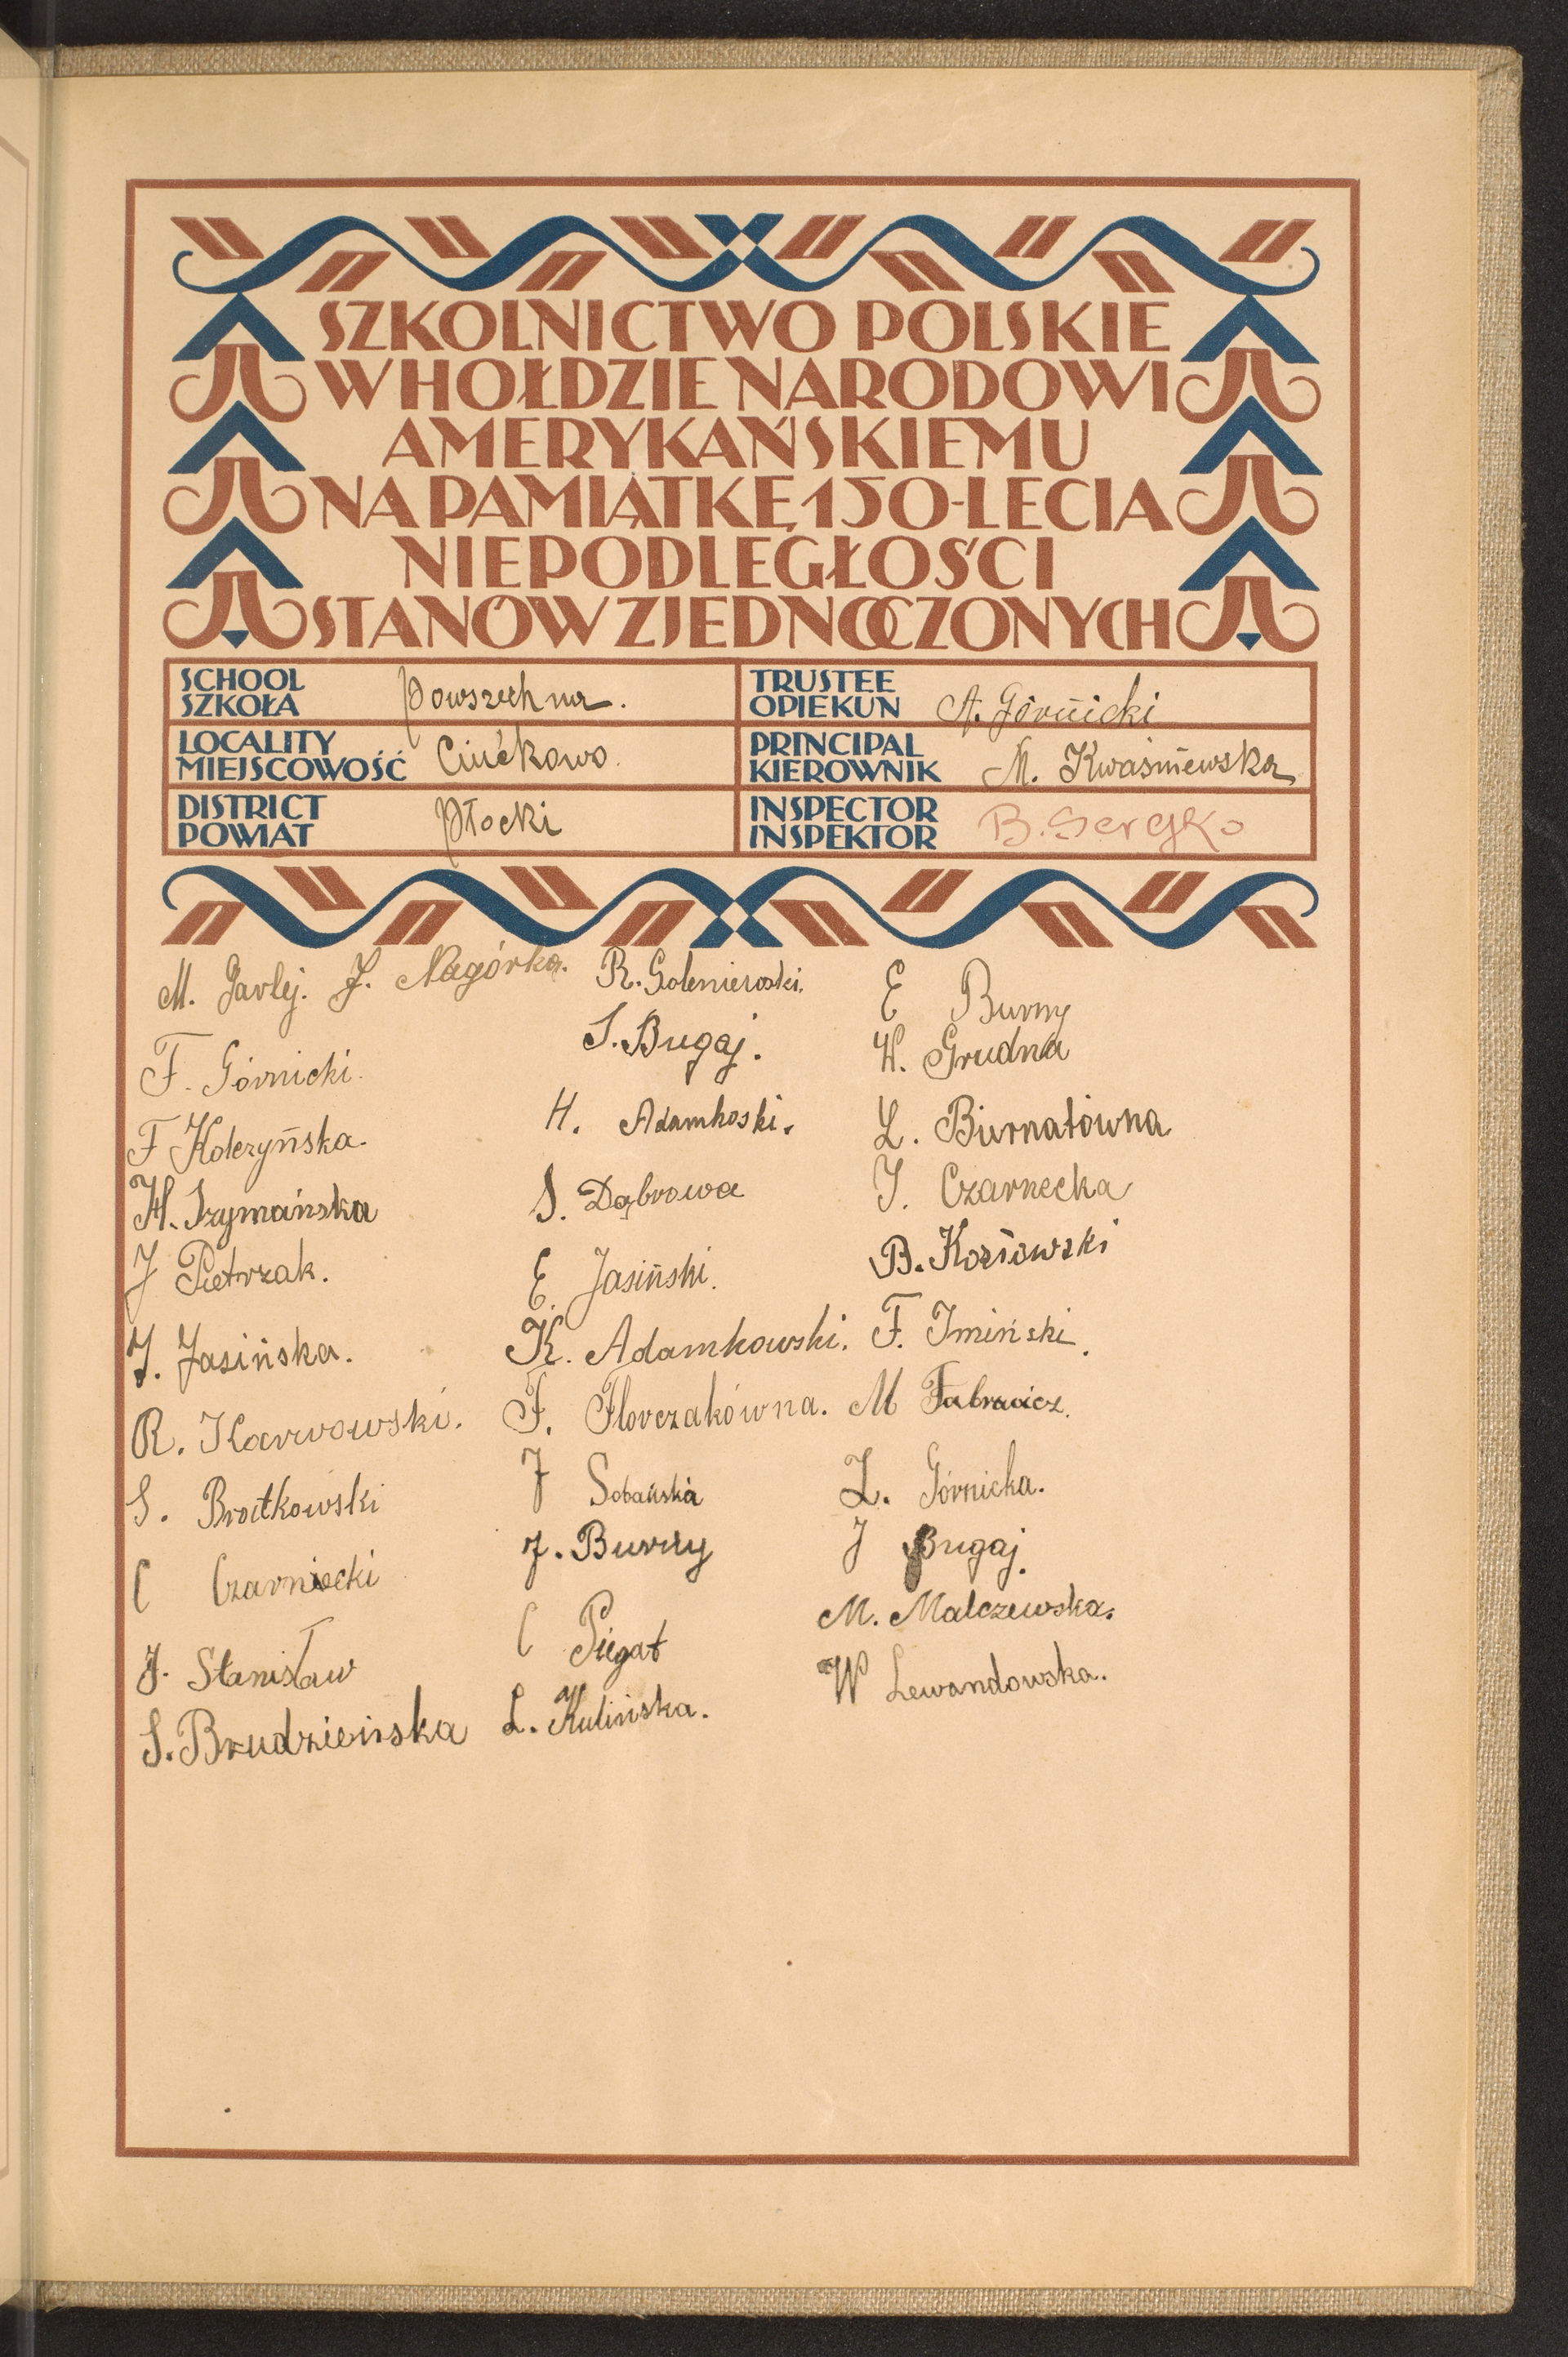 SZKOLNICTWO POLSKIE
W HOŁDZIE NARODOWI
AMERYKAŃSKIEMU
NA PAMIĄTKĘ 150-LECIA
NIEPODLEGŁOŚCI
STANÓW ZJEDNOCZONYCH
SCHOOL
SZKOŁA Powszechna.
TRUSTEE
OPIEKUN A. Górnicki
LOCALITY
MIEJSCOWOŚĆ Ciućkowo.
PRINCIPAL
KIEROWNIK M. Kwaśniewska
DISTRICT
POWIAT Płocki
INSPECTOR
INSPEKTOR B. Sergjko
M. Gavlej. J. Nagórka.
F. Górnicki.
F Kolczyńska.
H. Szymańska
J Pietrzak.
J. Jasińska.
R. Karwowski.
S. Brotkowski
C Czarniecki
J. Stanisław
S. Brudzieńska
R. Goleniewski.
S. Bugaj.
H. Adamkoski.
S. Dąbrowa
E. Jasiński.
K. Adamkowski.
F. Florczakówna.
J Sobańska
J. Burny
C Piegat
L. Kulińska.
E Burny
H. Grudna
L. Biernatówna
J. Czarnecka
B. Kozłowski
F. Imiński.
M
Z. Górnicka.
J Bugaj.
M. Malczewska.
W Lewandowska.